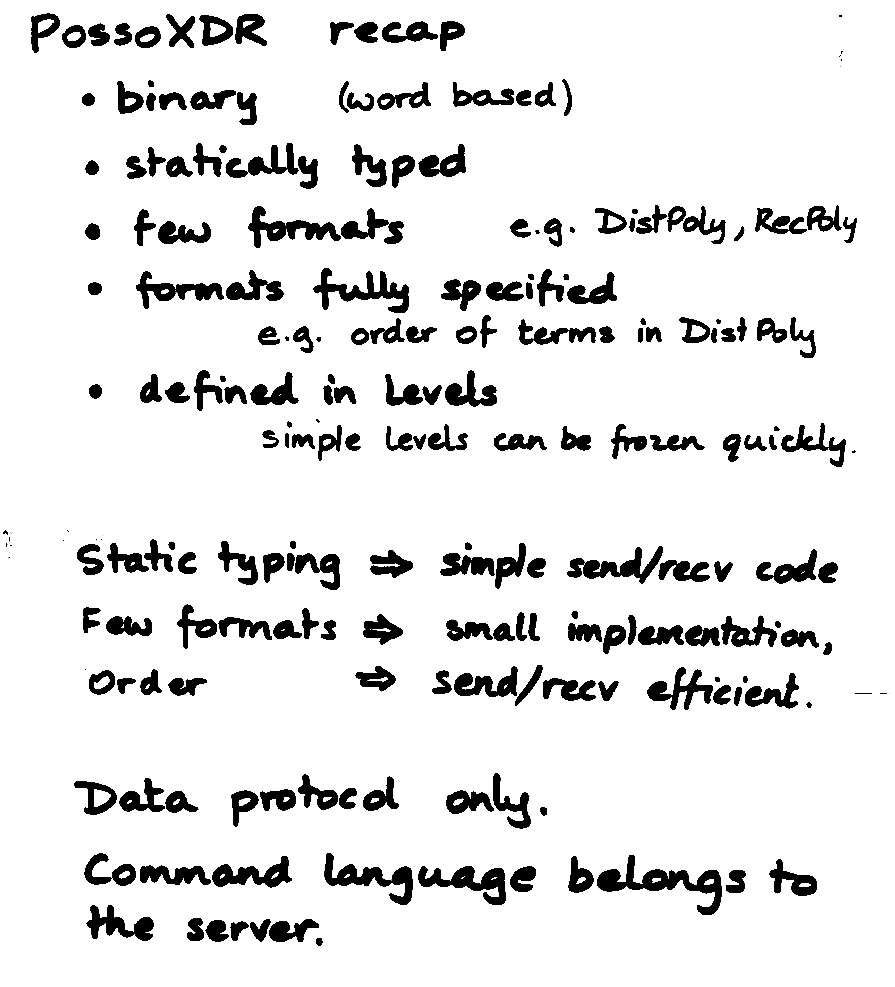 PossoXDR recap
• binary (word based)
• statically typed
• few formats e.g. DistPoly, RecPoly
• formats fully specified
e.g. order of terms in DistPoly
• defined in levels
simple levels can be frozen quickly.
Static typing ⇒ simple send/recv code
Few formats ⇒ small implementation,
Order ⇒ send/recv efficient.
Data protocol only.
Command language belongs to
the server.